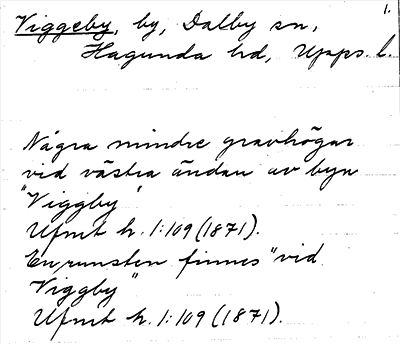 1.
Viggeby, by, Dalby sn,
Hagunda hd, Upps. l.
Några mindre gravhögar
vid västra ändan av byn
"Viggby"
Ufmt h. 1:109 (1871).
En runsten finnes "vid
Viggby"
Ufmt h. 1:109 (1871).